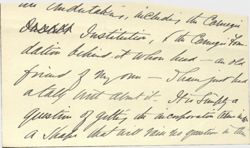 undertakes, including the Carnegie
Institution, & the Carnegie Foun
dation behind it whose head – an old
friend of my own – I have just had
a talk with about it. It is simply a
question of getting its incorporation thus into
a shape that will raise no question in the